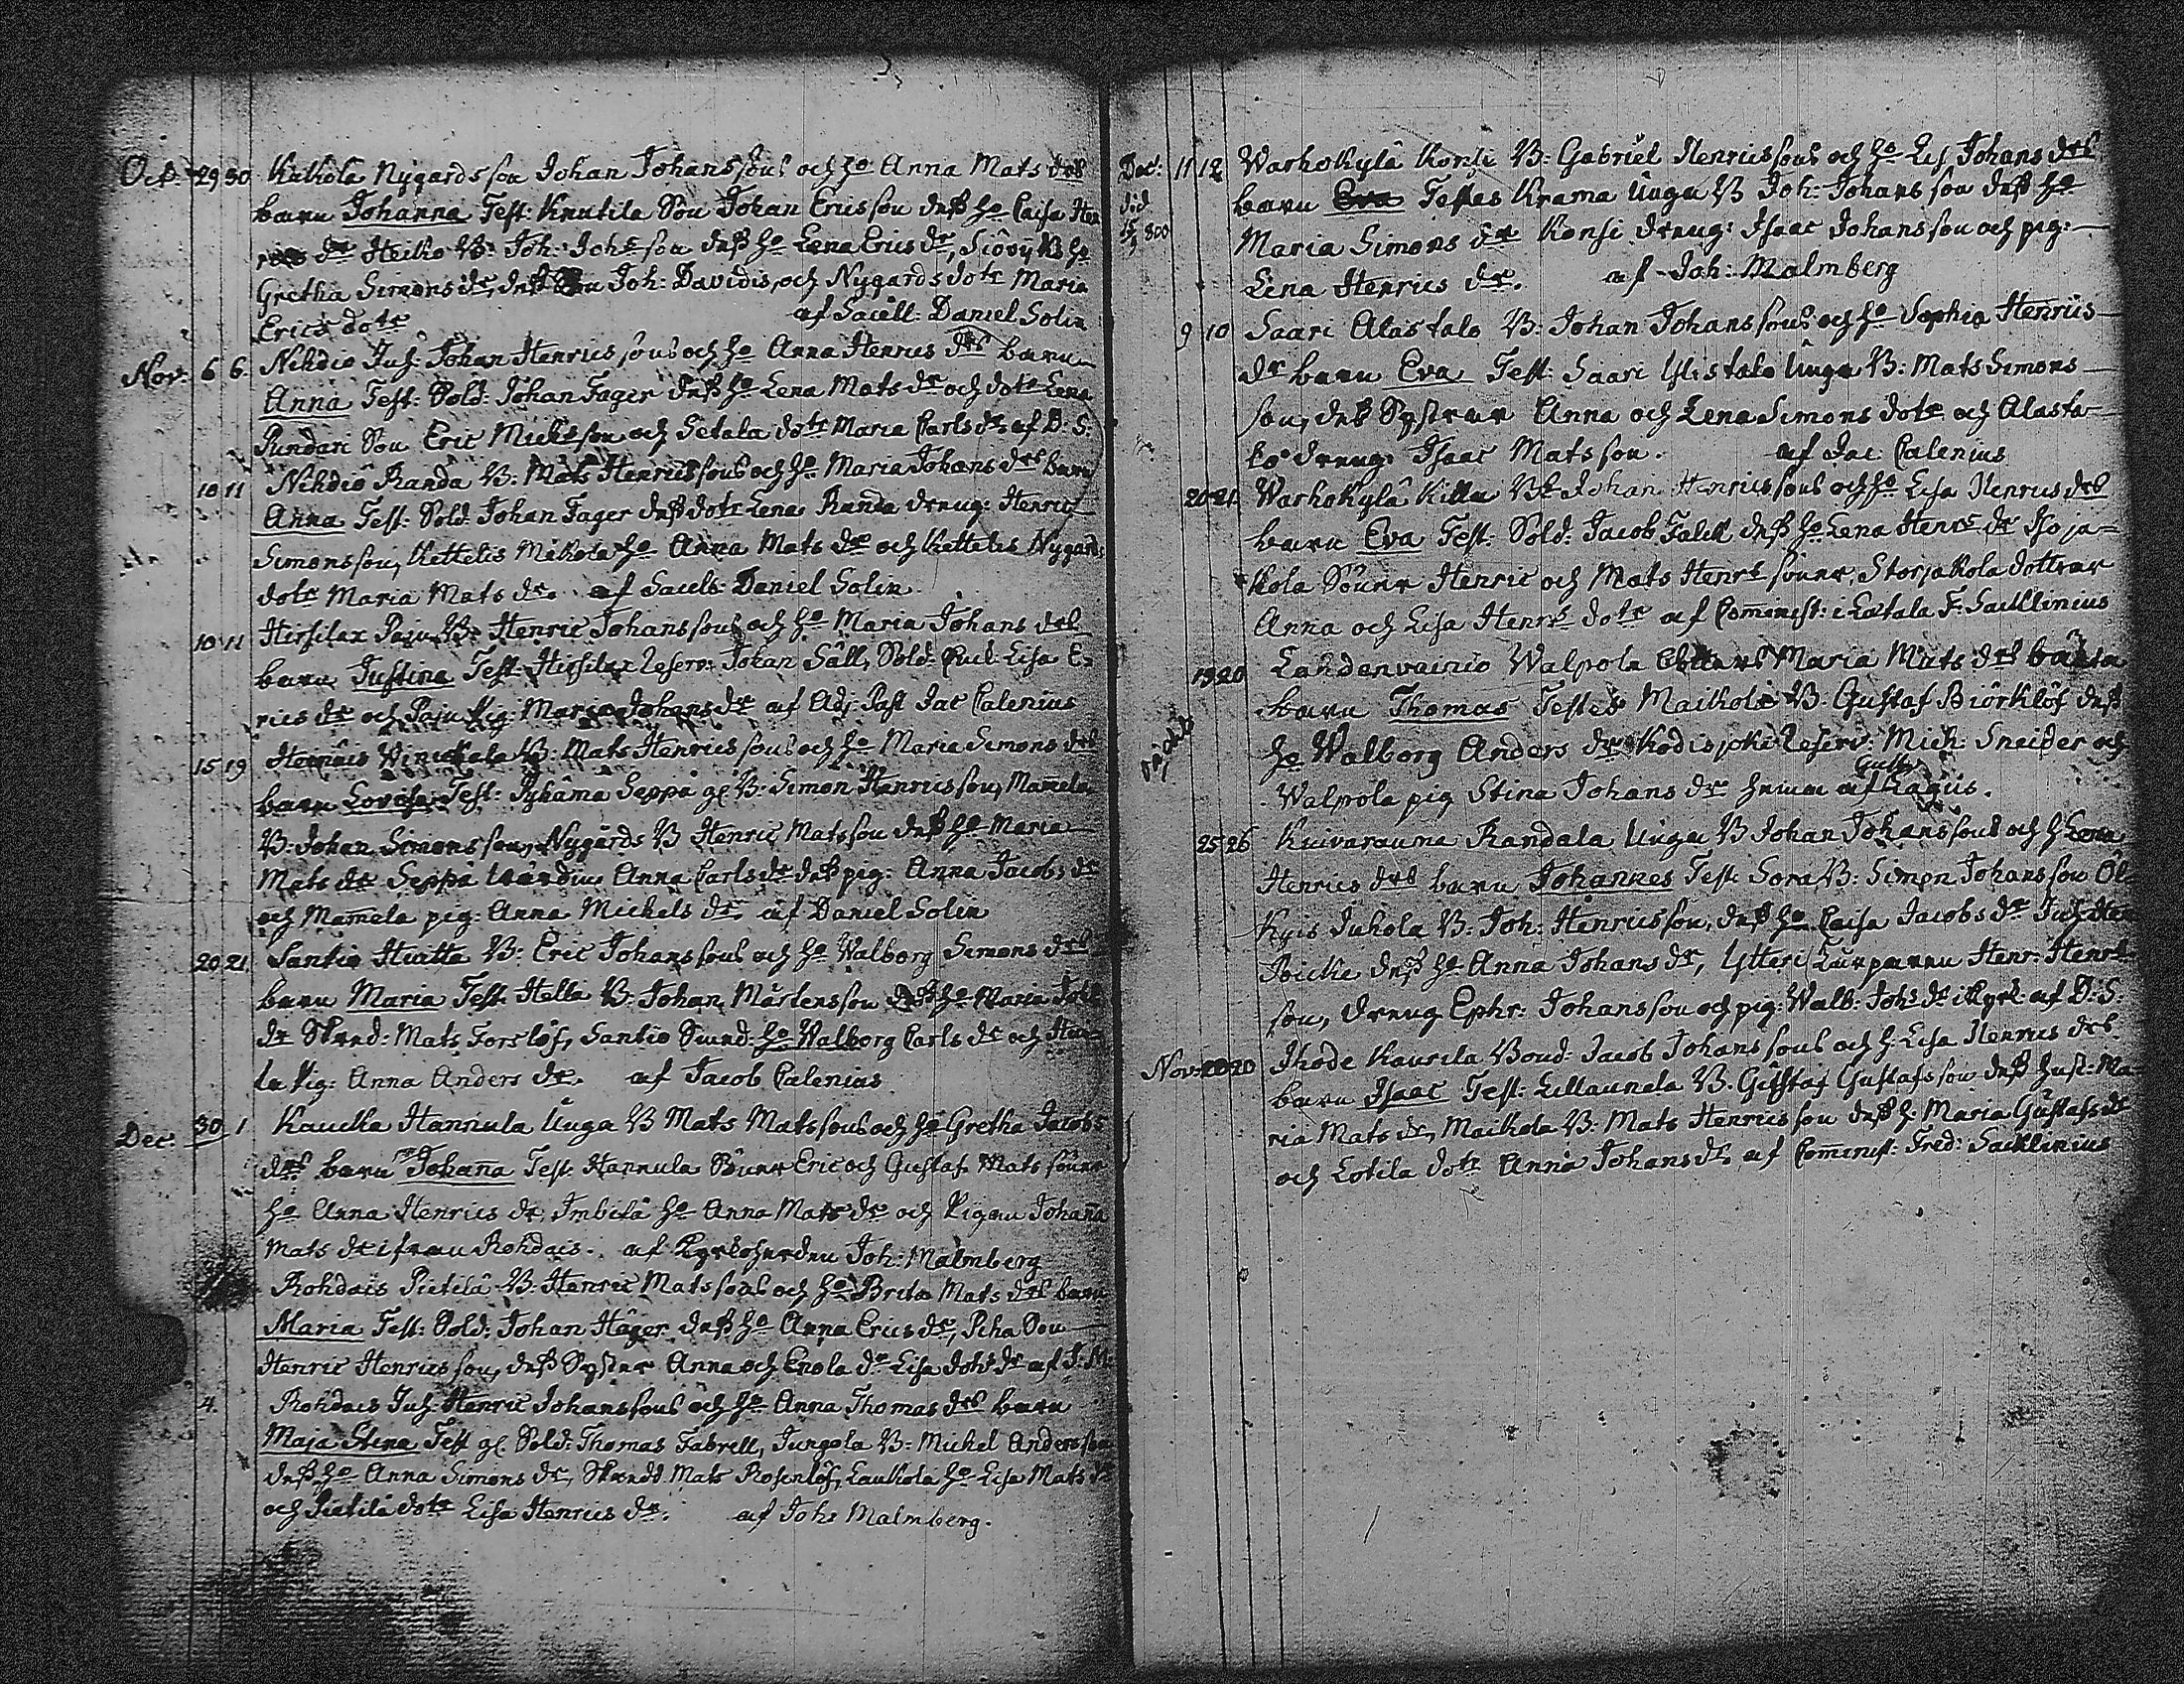 Oct: 29 30 Kukola Nygårds son Johan Johanssons och ho Anna Mats drs
barn Johanna Test: Knutila Son Johan Ericsson dess ho Caisa Hen
rics dr Heiko B: Joh: Johs son dess ho Lena Erics dr, Siövy Bs ho
Gretha Simons dr, dess Son Joh: Davidis, och Nygårds dotr Maria
Erics dotr af Sacell: Daniel Solin
Nov: 6 6 Nihdiö Inh: Johan Henricssons och ho Anna Henrics drs barn
Anna Test: Sold: Johan Fager dess ho Lena Mats dr och dotr Lena
Pundari Son Eric Michsson och Setala dotr Maria Carls dr af D: S:
10 11 Nihdiö Randa B: Mats Henricssons och ho Maria Johans drs barn
Anna Test: Sold: Johan Fager dess dotr Lena Randa dreng: Henric
Simonsson, Kettelis Mikola ho Anna Mats dr och Kettelis Nygårds
dotr Maria Mats dr. af Sacels: Daniel Solin
10 11 Hirsilax Paju B: Henric Johanssons och ho Maria Johans drs
barn Justina Test: Hirsilax Reserv: Johan Säll, Sold: Lisa E:
rics dr och Paju Pig: Maria Johans dr af Adj: Past Jac Calenius
15 19 Heinäis B: Mats Henricssons och ho Maria Simons drs
barn Lovisa Test: Pyhämä Seppä gl B: Simon Henricsson, Mamela
B: Johan Simonsson, Nygårds B Henric Matsson dess ho Maria
Mats dr Seppä Anna Carls dr dess pig: Anna Jacobs dr
och Mamela pig: Anna Michels dr af Daniel Solin
20 21 Santio Hiatta B: Eric Johanssons och ho Walborg Simons drs
barn Maria Test: Hella B: Johan Mårtensson dess ho Maria Joh:
dr Skred: Mats Forslöf, Santio Sund: ho Walborg Carls dr och Hia
la Pig: Anna Anders dr. af Jacob Calenius
Dec: 30 1 Kaucka Hannula Unga B Mats Matssons och ho Gretha Jacobs
drs barn Johaña Test: Hannula Söner Eric och Gustaf Mats söner
ho Anna Henrics dr, Imbilä ho Anna Mats dr och Pigan Johaña
Mats dr ifrån Rohdais. af Kyrkoherden Joh: Malmberg
Rohdais Pietilä B: Henric Matssons och ho Brita Mats drs barn
Maria Test: Sold: Johan Häger dess ho Anna Erics dr, Piha Son
Henric Henricsson, dess Syster Anna och Enola dr Lisa Johs dr af J: M:
4. Rohdais Inh: Henric Johanssons och ho Anna Thomas drs barn
Maja Stina Test gl Sold: Thomas Fabrell, Jungola B: Michel Andersson
dess ho Anna Simons dr, Skredd Mats Rosenlöf, Laukola ho Lisa Mats dr
och Pietilä dotr Lisa Henrics dr. af Joh: Malmberg.
Dec: 11 12 Warhokylä Konsi B: Gabriel Henricssons och ho Lis. Johans drs
did barn Eva Testes Krama Unga B Joh: Johansson dess ho
800 Maria Simons dr Konsi dreng: Isaac Johansson och pig:
Lena Henrics dr. af Joh: Malmberg
9 10 Saari Alastalo B: Johan Johanssons och ho Sophia Henrics
dr barn Eva Test: Saari Ylistalo Unga B: Mats Simons
son, dess Systrar Anna och Lena Simons dotr och Alasta
lo dreng: Isaac Matsson. af Jac: Calenius
20 21 Warhokylä Killa B: Johan Henricssons och ho Lisa Henrics drs
barn Eva Test: Sold: Jacob Falck dess ho Lena Henrs dr Isoja=
kola Söner Henric och Mats Henrs söner, Storjakola dottrar
Anna och Lisa Henrs dotr af Comminist: i Letala F: Sacklinius
19 20 Lahdenvainio Walpola Maria Mats drs oäkta
barn Thomas Testes Maikola B. Gustaf Biörklöf dess
ho Walborg Anders dr Kodisjoki Reserv: Mich: Sneider och
Walpola pig Stina Johans dr hemma af Lagus.
25 26 Kuivarauma Randala Unga B Johan Johanssons och h Lena
Henrics drs barn Johannes Test: Sora B: Simon Johansson Öl
Kyis Juhola B: Joh: Henricsson, dess ho Caisa Jacobs dr Inh: Hen
Boicke dess ho Anna Johans dr, Ytteri Henr: Henrs
son, dreng Ephr: Johansson och pig: Walb: Johs dr af D: S:
Nov: 20 20 Ihode Kaurila Bond: Jacob Johanssons och h: Lisa Henrics drs
barn Isaac Test: Lillaunela B. Gustaf Gustafsson dess hust: Ma
ria Mats dr, Maikola B: Mats Henricsson dess h: Maria Gustafs dr
och Lotila dotr Anna Johans dr. af Comminst: Fred: Sacklinius